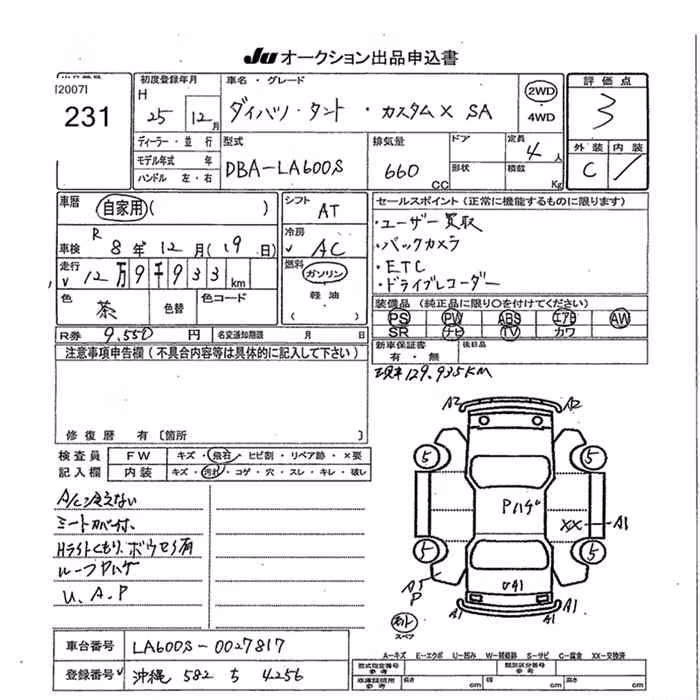 Ju オークション出品申込書
[2007]
231
初度登録年月
H 25 12月
車名・グレード
ダイハツ・タント・カスタムX SA
2WD
4WD
評価点
3
外装 内装
C
ディーラー・並行
モデル年式 年
ハンドル 左・右
型式
DBA-LA600S
排気量
660 cc
ドア
形状
定員
4人
積載
Kg
車歴 自家用( )
車検 R 8年 12月(19日)
走行 12万9千933 km
色 茶 色替 色コード
R券 9,550円 名変通知期限 月 日
シフト AT
冷房 AC
燃料 ガソリン
軽油
( )
セールスポイント(正常に機能するものに限ります)
・ユーザー買取
・バックカメラ
・ETC
・ドライブレコーダー
装備品(純正品に限り○を付けてください)
PS PW ABS エアB AW
SR ナビ TV カワ
新車保証書
有・無
後日品
現車129,935KM
注意事項申告欄(不具合内容等は具体的に記入して下さい)
修復歴 有〔箇所 〕
検査員 FW キズ・飛石・ヒビ割・リペア跡・×要
記入欄 内装 キズ・汚れ・コゲ・穴・スレ・キレ・破レ
A/C冷えない
シートカバー付、
Hライトくもり、ボウセう有
ルーフPハゲ
U、A、P
A2 A2
5 5
Pハゲ
XX A1
5 5
A1
P
UA1
A1 A1
スペア
A-キズ E-エクボ U-凹み W-補修跡 S-サビ C-腐食 XX-交換済
車台番号 LA600S-0027817
登録番号 沖縄 582 ち 4256
型式指定番号
参考
類別区分番号
参考
車庫証明用
参考
長さ cm 幅 cm 高さ cm